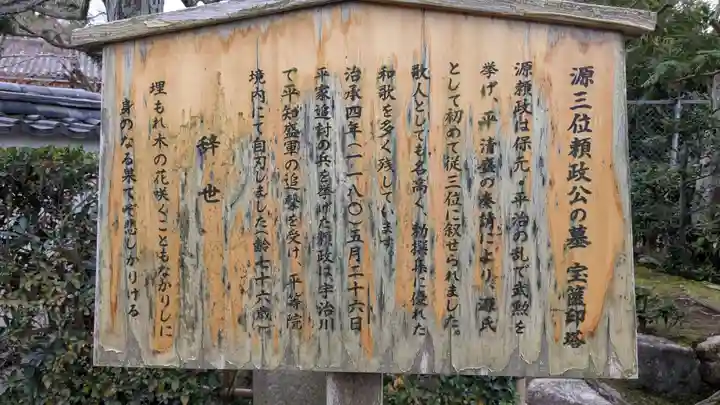 源三位頼政公の墓 宝篋印塔
源頼政は保元・平治の乱で武勲を
挙げ、平清盛の奏請により、源氏
として初めて従三位に叙せられました。
歌人としても名高く、勅撰集に優れた
和歌を多く残しています。
治承四年(一一八〇)五月二十六日
平家追討の兵を挙げた頼政は、宇治川
で平知盛軍の追撃を受け、平等院
境内にて自刃しました(齢七十六歳)
辞世
埋もれ木の花咲くこともなかりしに
身のなる果てぞ悲しかりける